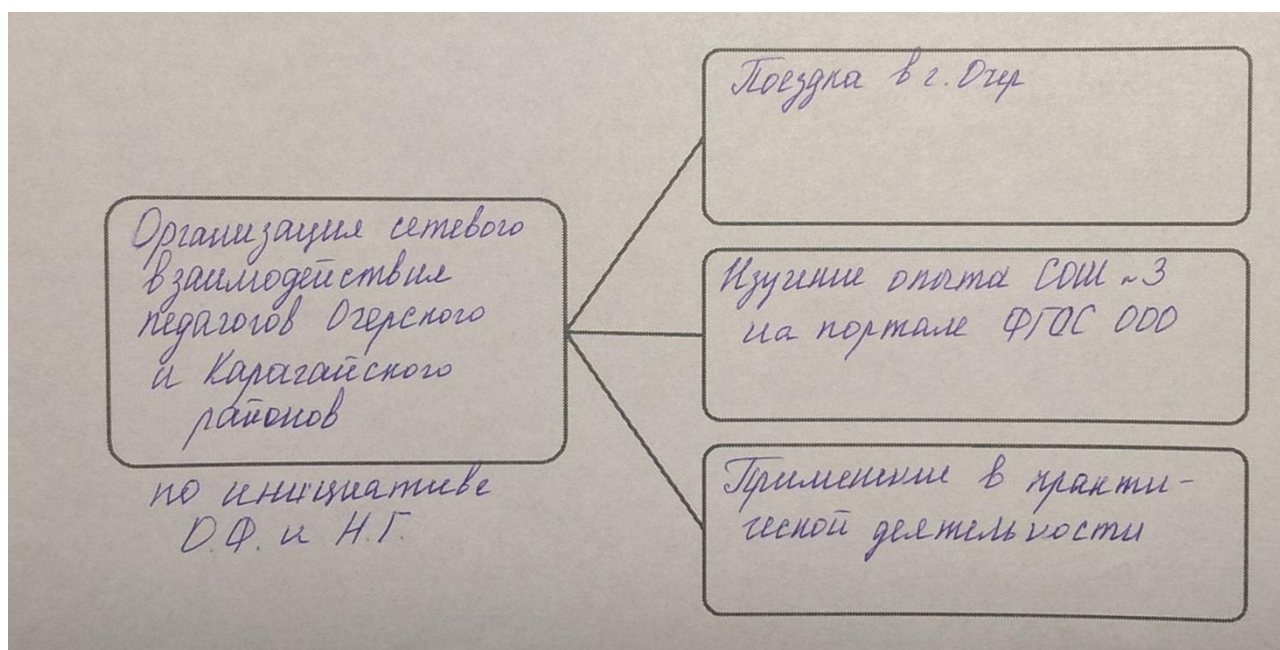 Организация сетевого
взаимодействия
педагогов Очерского
и Карагайского
районов
по инициативе
О.Ф. и Н.Г.
Поездка в г. Очер
Изучение опыта СОШ №3
на портале ФГОС ООО
Применение в практи-
ческой деятельности